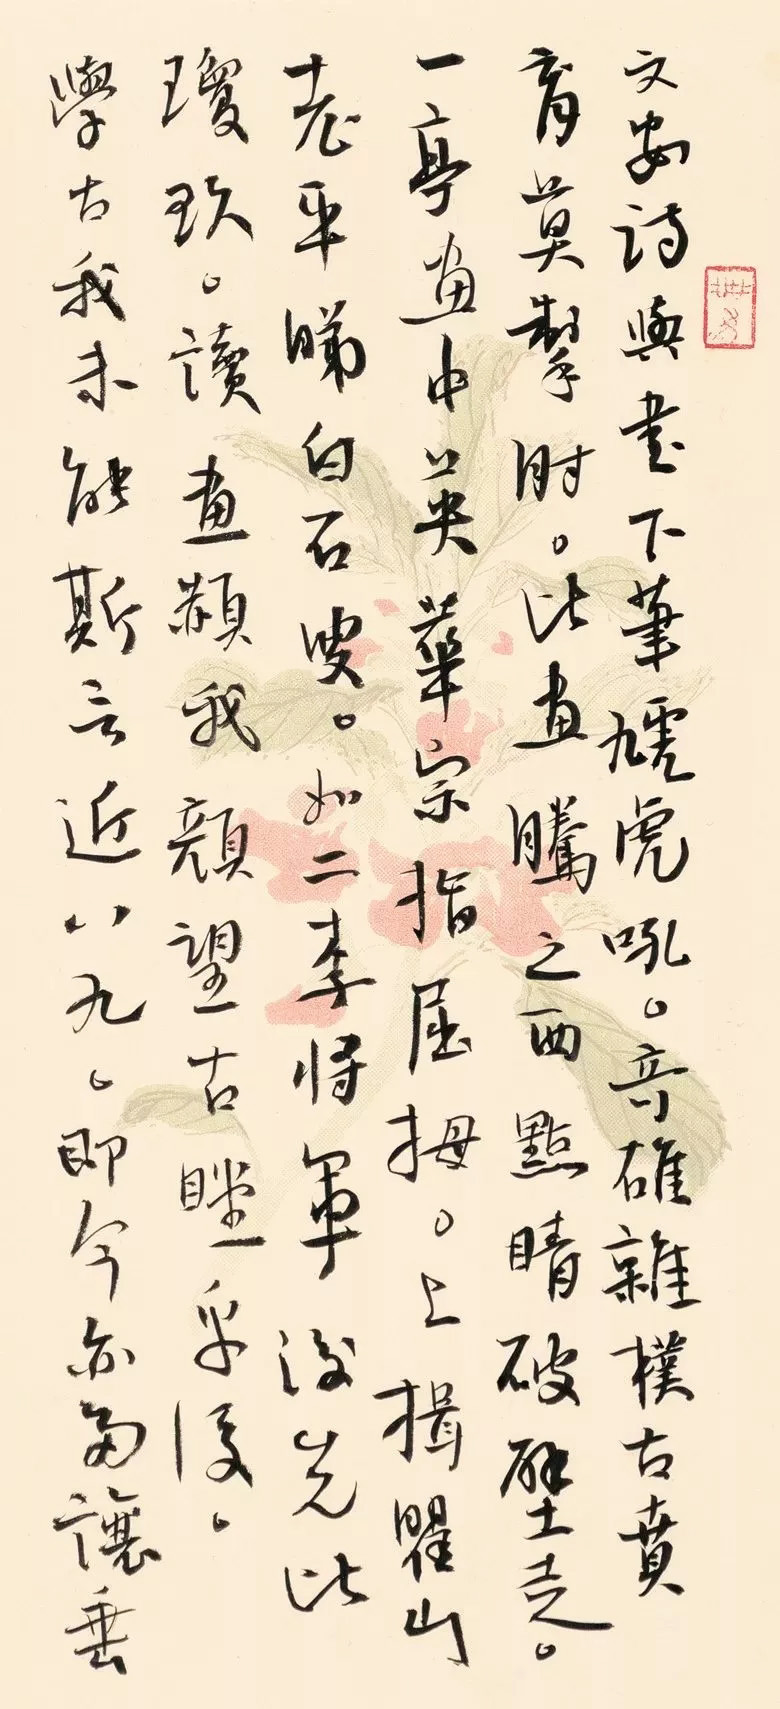 文安詩與書下筆虓虎吼。奇雄雜樸古賁
育莫掣肘。此畫騰之西點睛破壁走。
一亭畫中英華宗指屈拇。上揖瞿山
老平睇白石叟。如二李將軍後先比
瓊玖。讀畫頳我顏望古瞠乎後。
學古我未能斯言近八九。即今亦讓垂